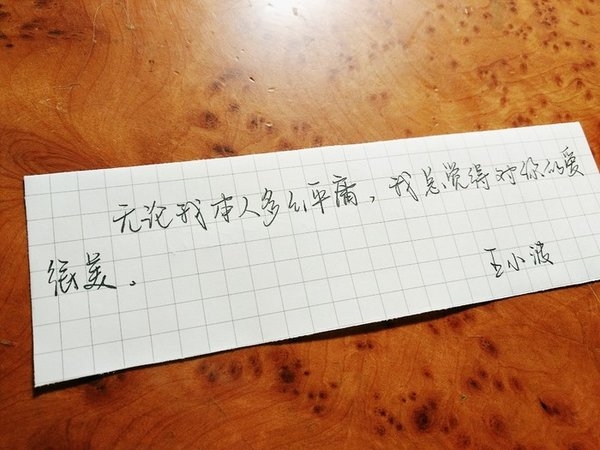 无论我本人多么平庸，我总觉得对你的爱
很美。
王小波